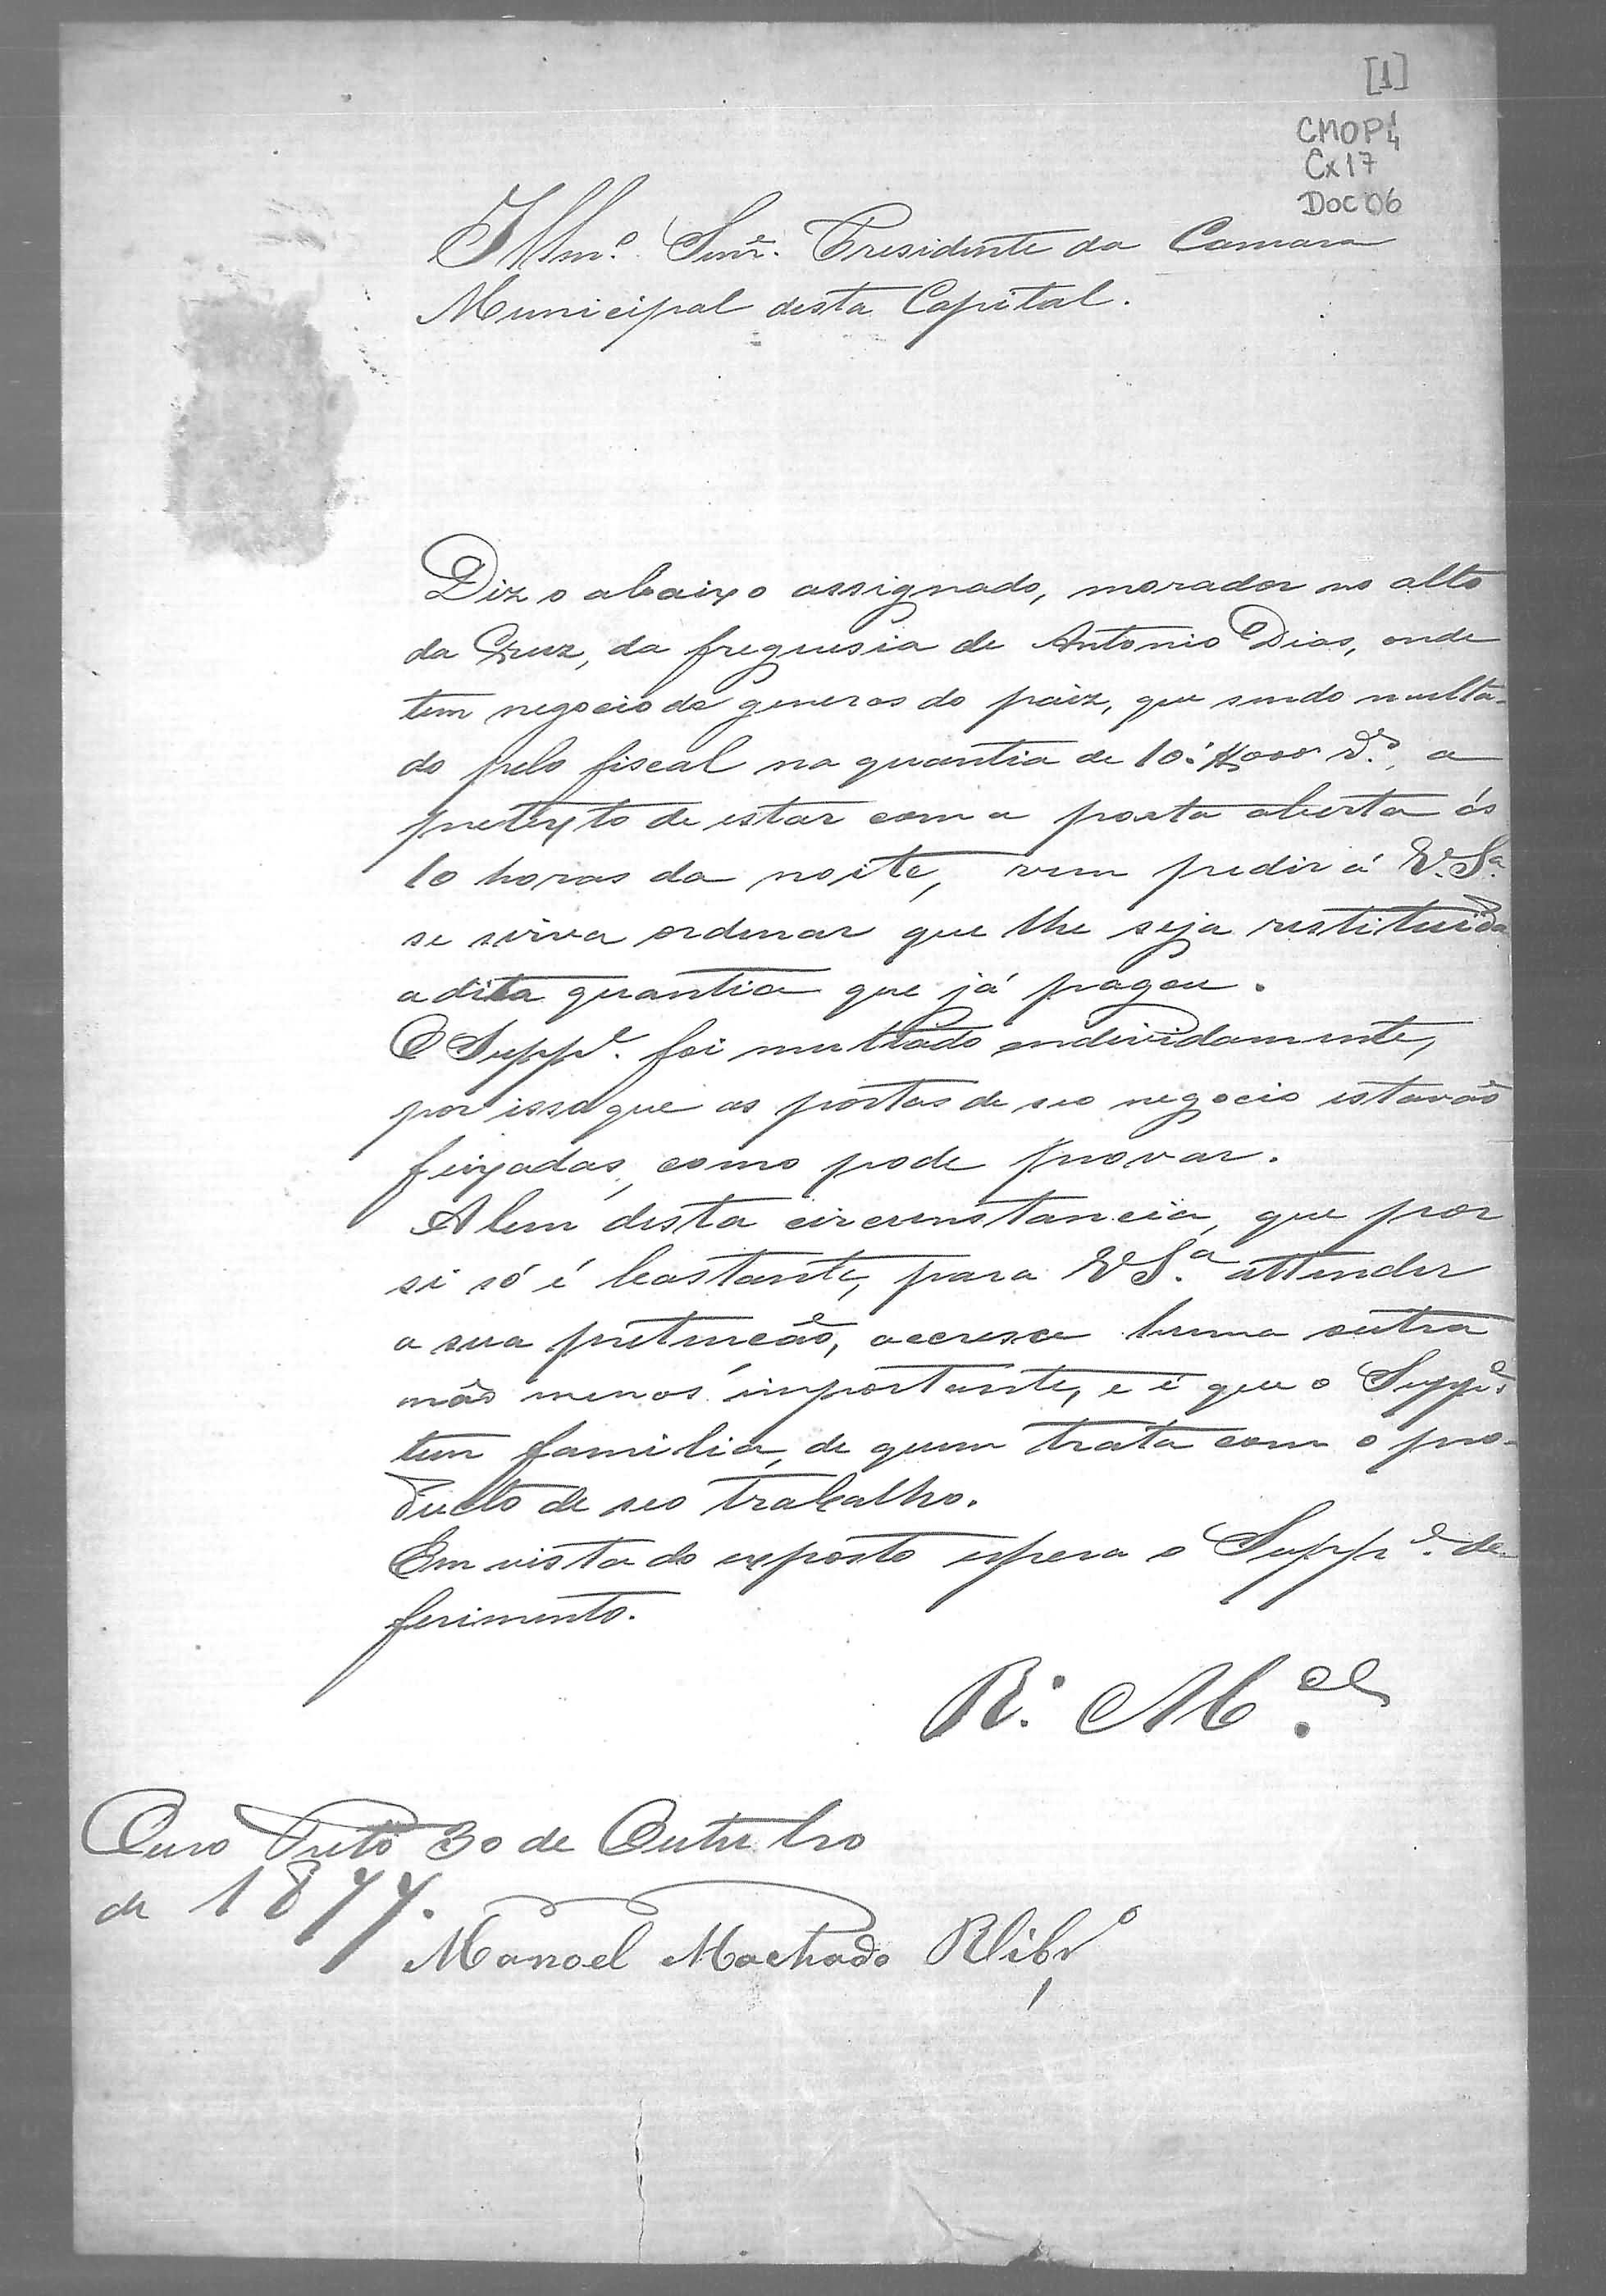 [1]
CMOP
Cx17
Doc 06
Illmº. Senr. Presidente da Camara
Municipal desta Capital.
Diz o abaixo assignado, morador no alto
da Cruz, da freguesia de Antonio Dias, onde
tem negocio de generos do paiz, que sendo multa-
do pelo fiscal na quantia de 10:#000 rs., a
pretexto de estar com a porta aberta ás
10 horas da noite, vem pedir á V. Sª.
se sirva ordenar que lhe seja restituida
a dita quantia que já pagou.
O Suppe. foi multado individamente,
por isso que as portas de seo negocio estavão
feixadas, como pode provar.
Alem desta circunstancia, que por
si só é bastante, para V Sª. attender
a sua pretencão, accresce huma outra
não menos importante, e é que o Suppe.
tem familia, de quem trata com o pro-
ducto de seo trabalho.
Em vista do exposto espera o Suppe. de-
ferimento.
R. Mce.
Ouro Preto 30 de Outubro
de 1877.
Manoel Machado Ribrº